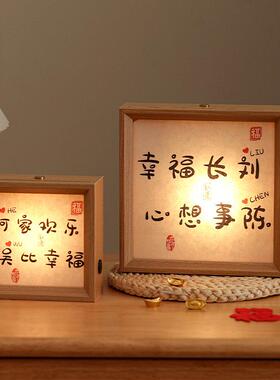 HE
何家欢乐
WU
吴比幸福
福
LIU
幸福长刘
CHEN
心想事陈